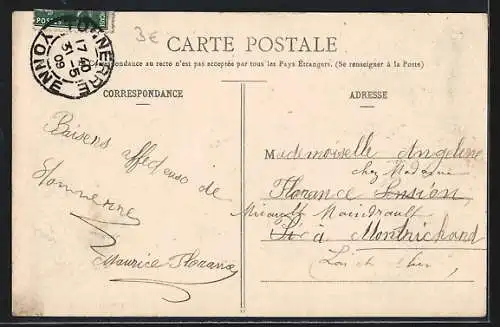 TONNERRE
17 40
31 - 5
09
YONNE
3€
CARTE POSTALE
Correspondance au recto n'est pas acceptée par tous les Pays Étrangers. (Se renseigner à la Poste)
CORRESPONDANCE
Baisers affectueuse de
Tonnerre
Maurice Florance
ADRESSE
Mademoiselle Angeline
chez Madame
Florance
à Montrichard
Loir et Cher